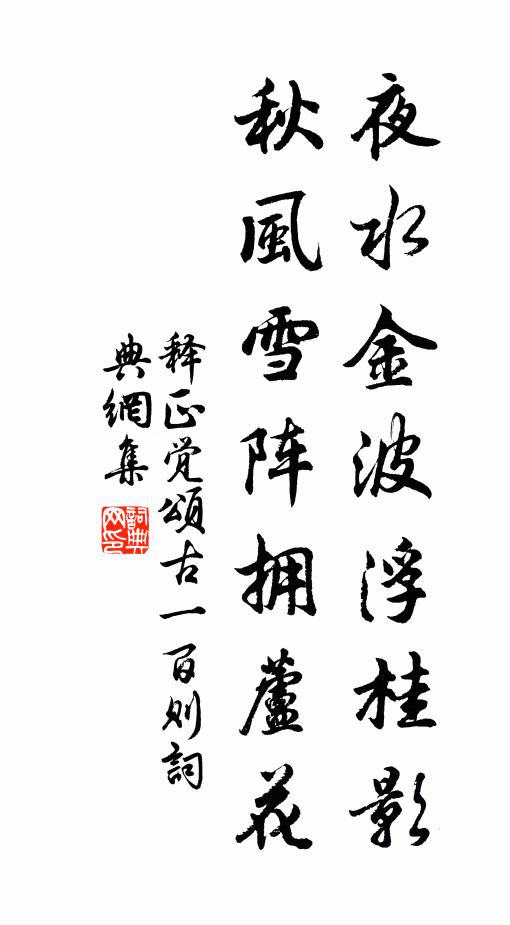 夜水金波浮桂影
秋風雪阵拥蘆花
释正觉頌古一百则詞
典網集
詞典网印